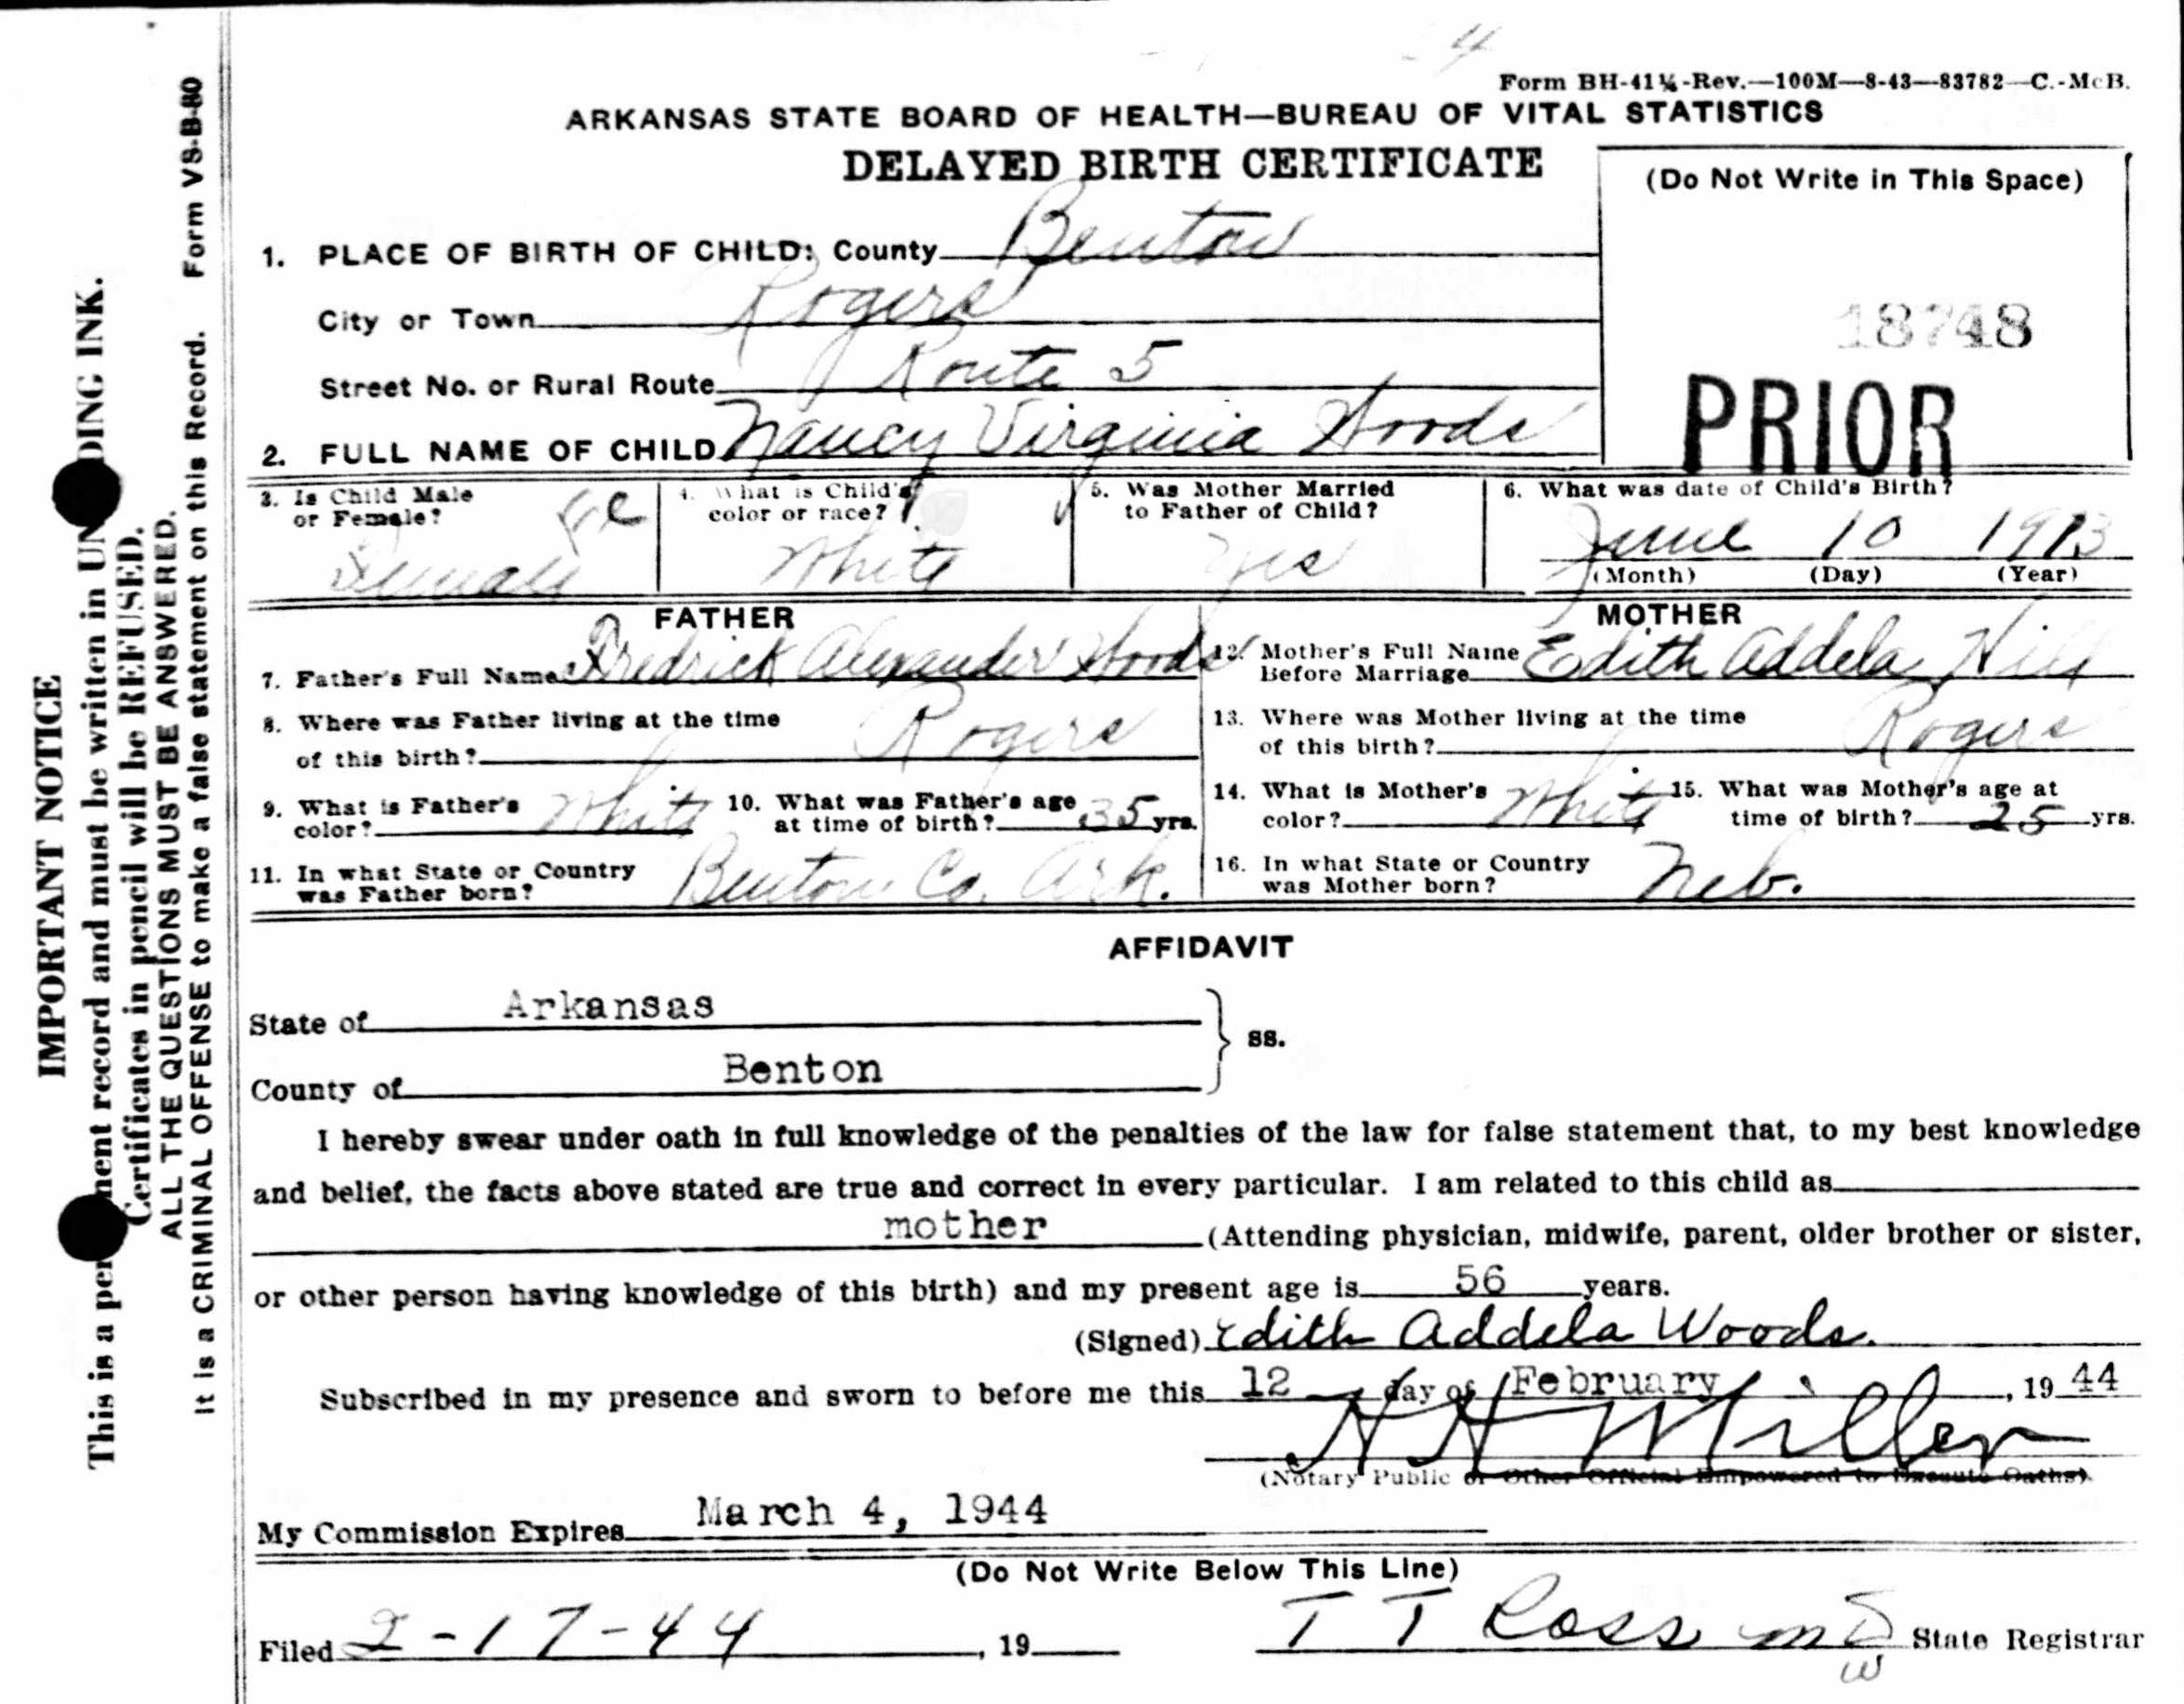 4
Form BH-41¼-Rev.—100M—8-43—83782—C.-McB.
ARKANSAS STATE BOARD OF HEALTH—BUREAU OF VITAL STATISTICS
DELAYED BIRTH CERTIFICATE
(Do Not Write in This Space)
18748
PRIOR
1. PLACE OF BIRTH OF CHILD: County Benton
City or Town Rogers
Street No. or Rural Route Route 5
2. FULL NAME OF CHILD Nancy Virginia Woods
3. Is Child Male or Female? Female
4. What is Child's color or race? White
5. Was Mother Married to Father of Child? Yes
6. What was date of Child's Birth?
June 10 1913
(Month) (Day) (Year)
FATHER
7. Father's Full Name Fredrick Alexander Woods
8. Where was Father living at the time
of this birth? Rogers
9. What is Father's color? White 10. What was Father's age at time of birth? 35 yrs.
11. In what State or Country was Father born? Benton Co. Ark.
MOTHER
12. Mother's Full Name Before Marriage Edith Addela Hill
13. Where was Mother living at the time
of this birth? Rogers
14. What is Mother's color? White 15. What was Mother's age at time of birth? 25 yrs.
16. In what State or Country was Mother born? Neb.
AFFIDAVIT
State of Arkansas
ss.
County of Benton
I hereby swear under oath in full knowledge of the penalties of the law for false statement that, to my best knowledge
and belief, the facts above stated are true and correct in every particular. I am related to this child as
mother (Attending physician, midwife, parent, older brother or sister,
or other person having knowledge of this birth) and my present age is 56 years.
(Signed) Edith Addela Woods.
Subscribed in my presence and sworn to before me this 12 day of February, 19 44
H H Miller
(Notary Public or Other Official Empowered to Execute Oaths)
My Commission Expires March 4, 1944
(Do Not Write Below This Line)
Filed 2-17-44, 19
T T Ross MD State Registrar
w
IMPORTANT NOTICE
This is a per nent record and must be written in UN DING INK.
Certificates in pencil will be REFUSED.
ALL THE QUESTIONS MUST BE ANSWERED.
It is a CRIMINAL OFFENSE to make a false statement on this Record. Form VS-B-80